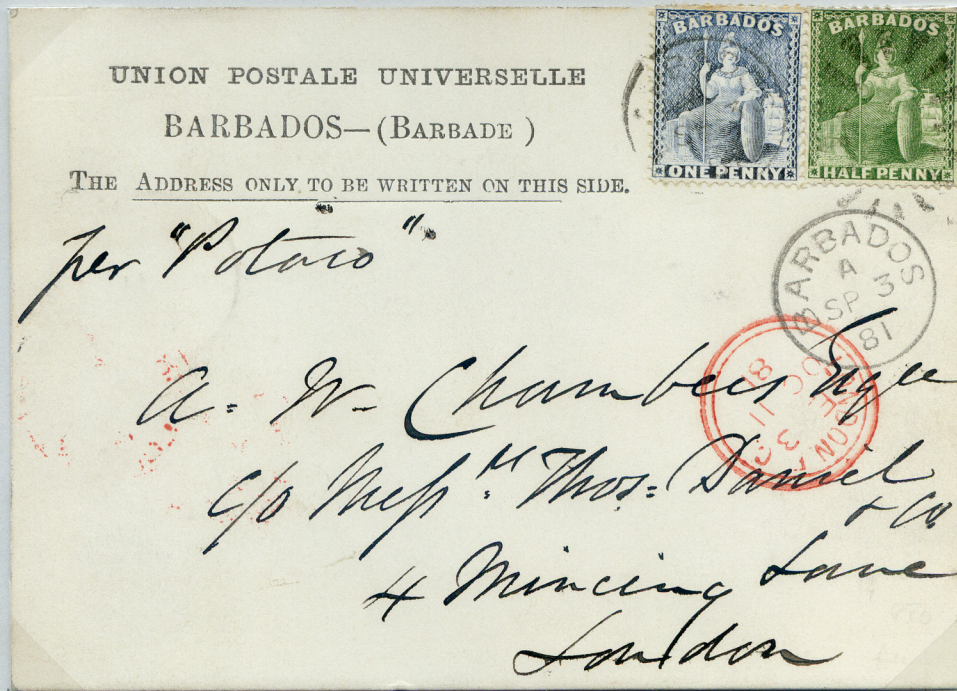 UNION POSTALE UNIVERSELLE
BARBADOS—(BARBADE)
THE ADDRESS ONLY TO BE WRITTEN ON THIS SIDE.
BARBADOS
ONE PENNY
BARBADOS
HALF PENNY
per "Potaro"
BARBADOS
A
SP 3
81
LONDON E.C.
3
OC 11
81
A. W. Chambers Esqre
c/o Messrs. Thos. Daniel
& Co.
4 Mincing Lane
London